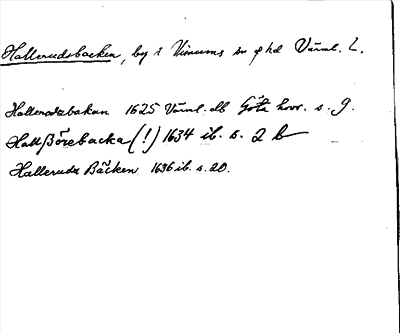 Hallerudsbacken, by i Visnums sn o hd Värml. L.
Hallerodzbakan 1625 Värml. db Göta hovr. s. 9.
Hallßörebacka (!) 1634 ib. s. 2 b
Halleruds Bäcken 1636 ib. s. 20.